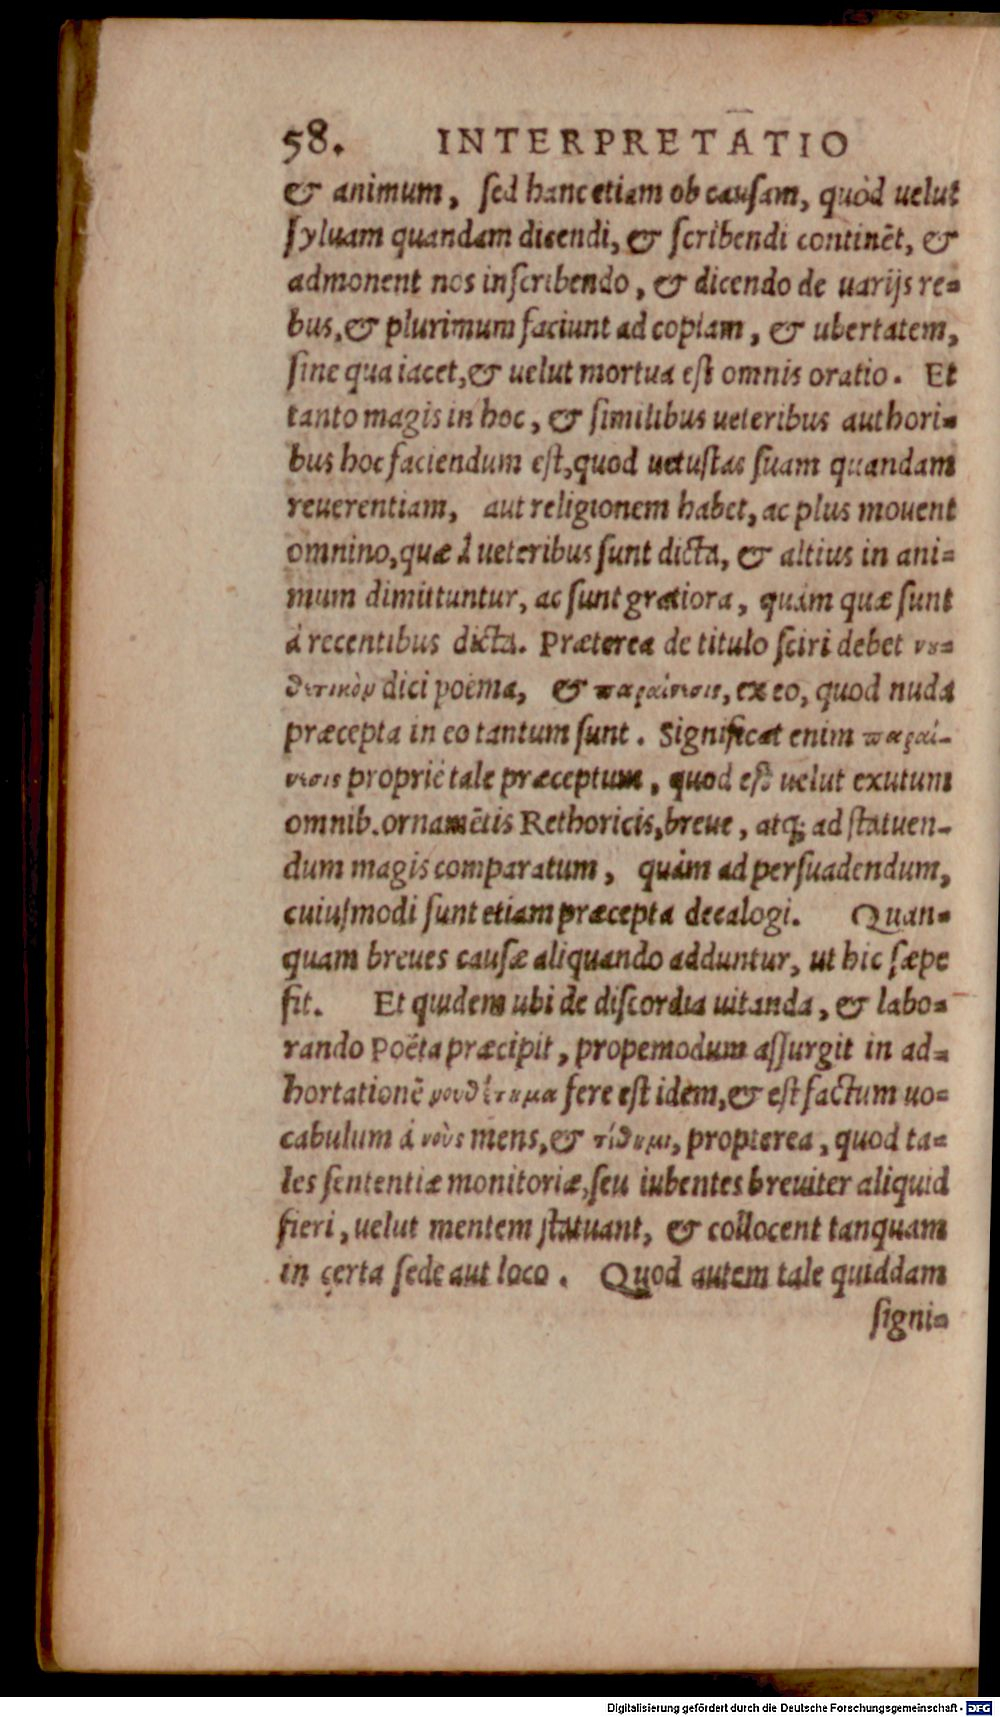 58. INTERPRETATIO
& animum, sed hanc etiam ob causam, quòd uelut
syluam quandam dicendi, & scribendi continēt, &
admonent nos inscribendo, & dicendo de uarijs re-
bus, & plurimum faciunt ad copiam, & ubertatem,
sine qua iacet, & uelut mortua est omnis oratio. Et
tanto magis in hoc, & similibus ueteribus authori-
bus hoc faciendum est, quod uetustas suam quandam
reuerentiam, aut religionem habet, ac plus mouent
omnino, quæ à ueteribus sunt dicta, & altius in ani-
mum dimittuntur, ac sunt gratiora, quàm quæ sunt
à recentibus dicta. Præterea de titulo sciri debet νȣ-
θετικὸν dici poëma, & παραίνεσις, ex eo, quod nuda
præcepta in eo tantum sunt. Significat enim παραί-
νεσις propriè tale præceptum, quod est uelut exutum
omnib. ornamētis Rethoricis, breue, atq; ad statuen-
dum magis comparatum, quàm ad persuadendum,
cuiusmodi sunt etiam præcepta decalogi. Quan-
quam breues causæ aliquando adduntur, ut hic sæpe
fit. Et quidem ubi de discordia uitanda, & labo-
rando Poëta præcipit, propemodum assurgit in ad-
hortationē νουθέτημα fere est idem, & est factum uo-
cabulum à νοὺς mens, & τίθημι, propterea, quod ta-
les sententiæ monitoriæ, seu iubentes breuiter aliquid
fieri, uelut mentem statuant, & collocent tanquam
in certa sede aut loco. Quod autem tale quiddam
signi-
Digitalisierung gefördert durch die Deutsche Forschungsgemeinschaft - DFG